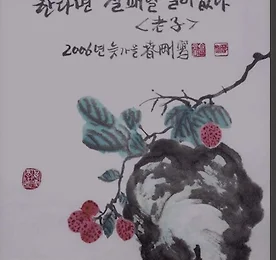 한다면 실패할 일이 없다
<老子>
2006년 늦가을 春剛寫